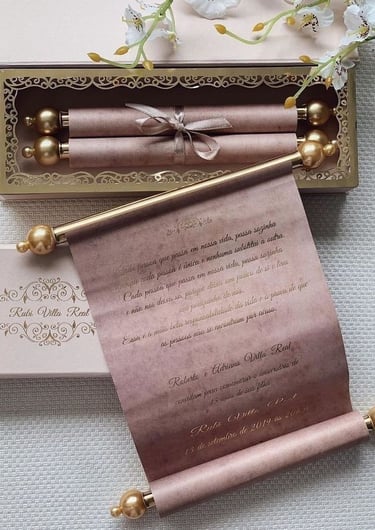 Cada pessoa que passa em nossa vida, passa sozinha
cada pessoa é única e nenhuma substitui a outra.
Cada pessoa que passa em nossa vida,
e não nos deixa só, porque deixa um pouco de si e leva
um pouquinho de nós.
Essa é a mais bela responsabilidade da vida e a prova de que
as pessoas não se encontram por acaso.
Roberto e Adriana Villa Real
convidam para comemorar o aniversário de
15 anos de sua filha
Rubi Villa Real
13 de setembro de 2019 às
Rubi Villa Real